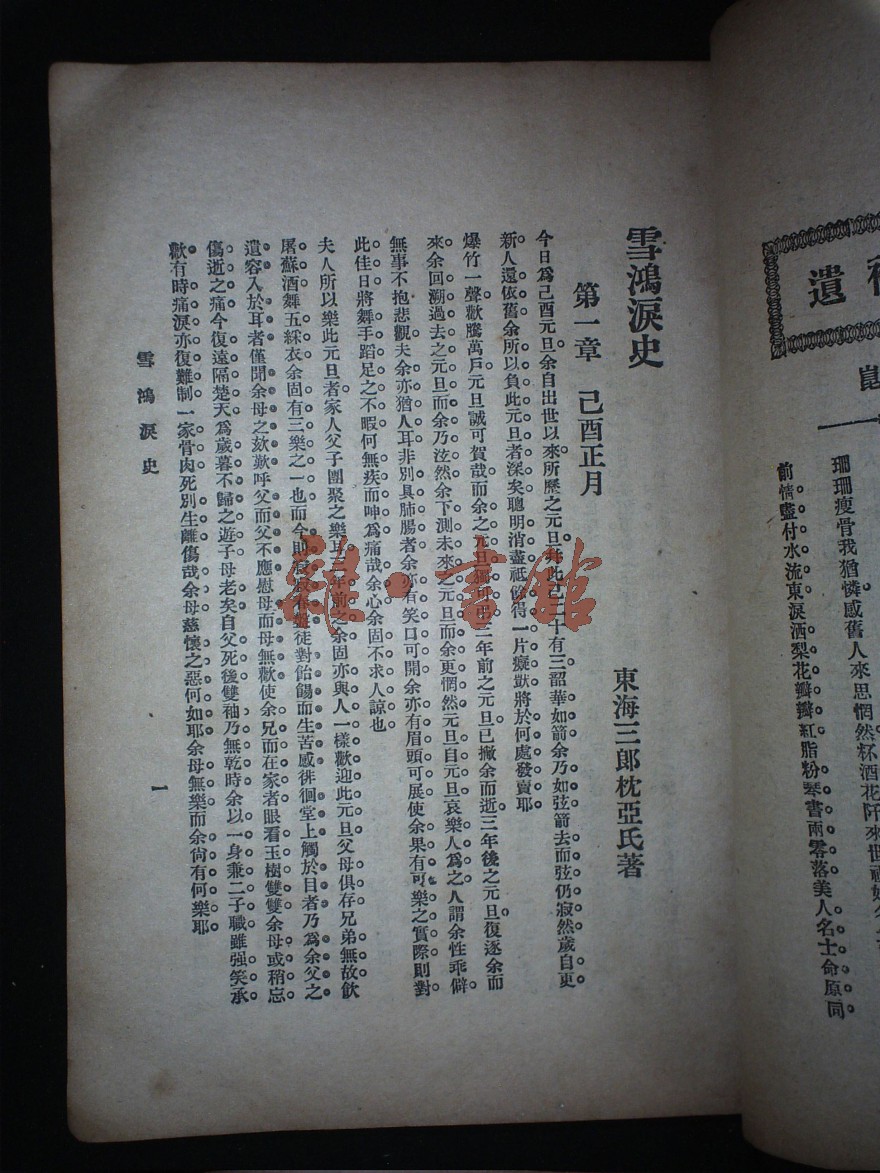 遺
前情盡付水流東淚洒梨花瓣瓣紅脂粉琴書兩零落美人名士命原同
雪鴻淚史
東海三郎枕亞氏著
第一章　己酉正月
今日爲己酉元旦余自出世以來所歷之元旦幷此已二十有三韶華如箭余乃如弦箭去而弦仍寂然歲自更
新人還依舊余所以負此元旦者深矣聰明消盡祗賸得一片癡獃將於何處發賣耶
爆竹一聲歡騰萬戶元旦誠可賀哉而余之元旦獨可弔三年前之元旦已撇余而逝三年後之元旦復逐余而
來余回溯過去之元旦而余乃泫然余下測未來之元旦而余更惘然元旦自元旦哀樂人爲之人謂余性乖僻
無事不抱悲觀夫余亦猶人耳非別具肺腸者余亦有笑口可開余亦有眉頭可展使余果有可樂之實際則對
此佳日將舞手蹈足之不暇何無疾而呻爲痛哉余心余固不求人諒也
夫人所以樂此元旦者家人父子團聚之樂耳三年前之余固亦與人一樣歡迎此元旦父母俱存兄弟無故飲
屠蘇酒舞五綵衣余固有三樂之一也而今則寂寂春盤徒對飴餳而生苦感徘徊堂上觸於目者乃爲余父之
遺容入於耳者僅聞余母之欬歎呼父而父不應慰母而母無歡使余兄而在家者眼看玉樹雙雙余母或稍忘
傷逝之痛今復遠隔楚天爲歲暮不歸之遊子母老矣自父死後雙袖乃無乾時余以一身兼二子職雖强笑承
歡有時痛淚亦復難制一家骨肉死別生離傷哉余母慈懷之惡何如耶余母無樂而余尙有何樂耶
雪鴻淚史
一
雜·書館